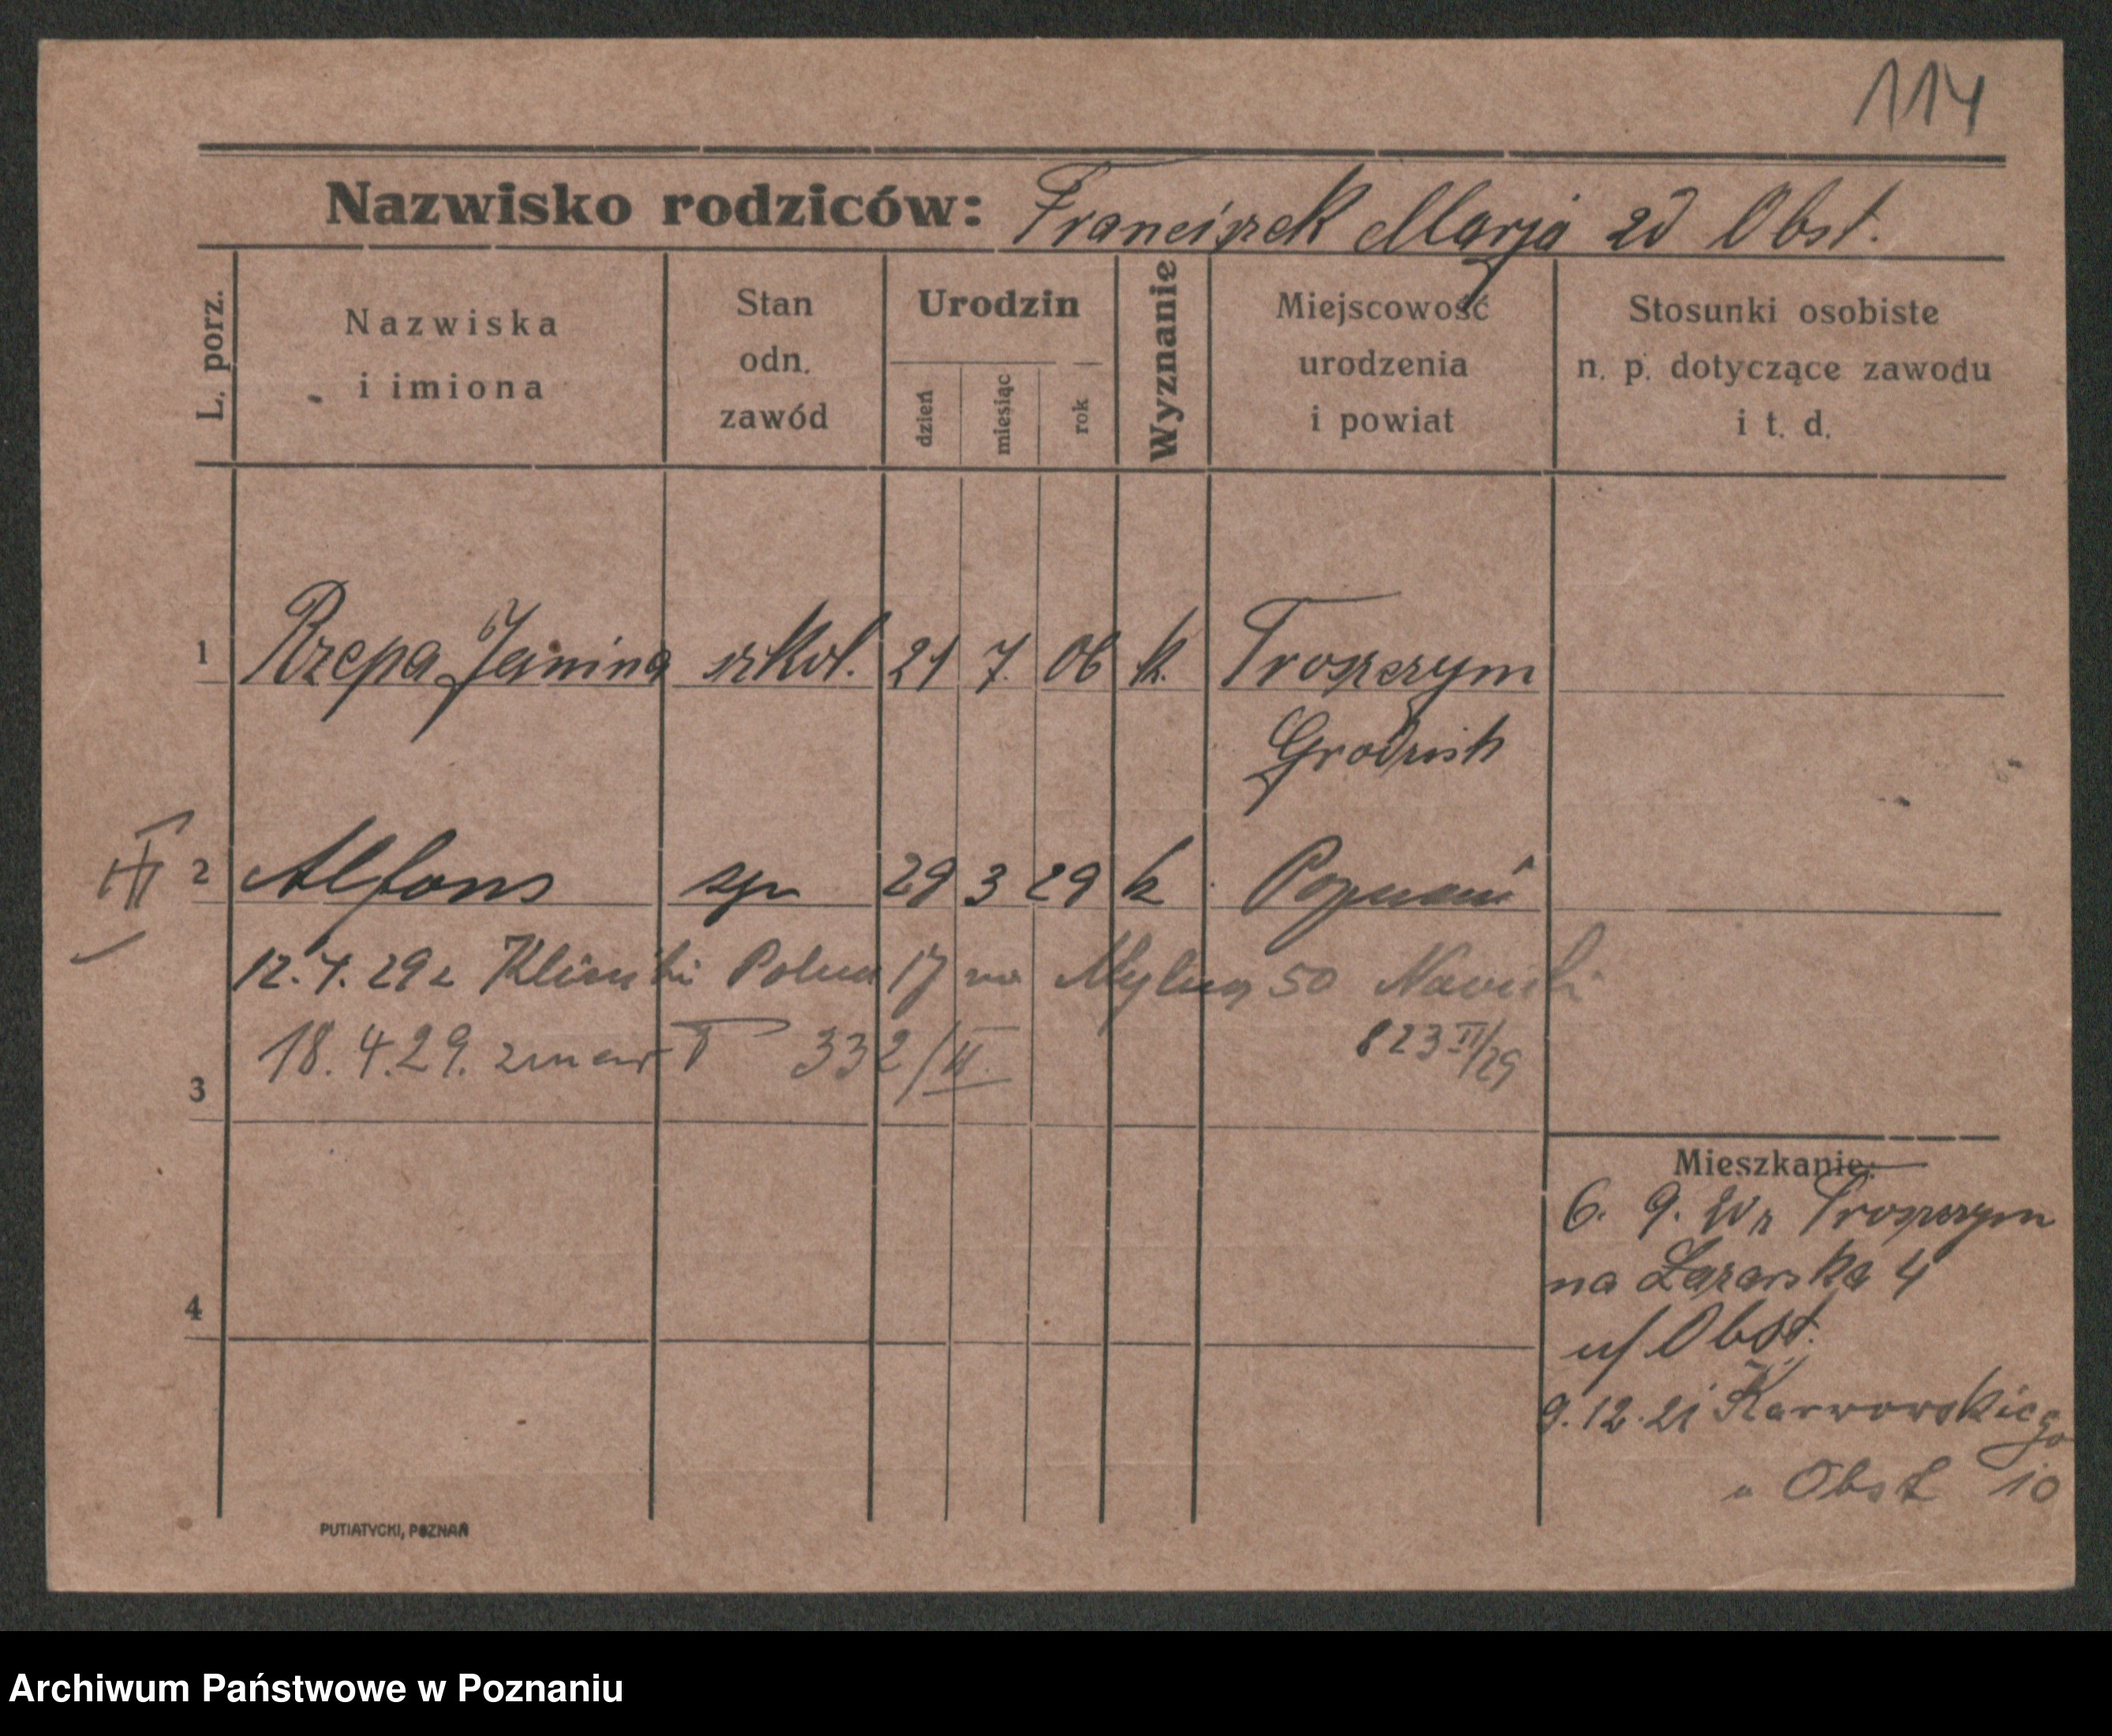 114
Nazwisko rodziców: Franciszek Marja zd Obst.
L. porz.
Nazwiska
i imiona
Stan
odn.
zawód
Urodzin
dzień
miesiąc
rok
Wyznanie
Miejscowość
urodzenia
i powiat
Stosunki osobiste
n. p. dotyczące zawodu
i t. d.
1 Rzepa Janina szkol. 21 7. 06 k. Troszczym
Grodzisk
2 Alfons syn 29 3 29 k Poznań
12.4.29 z Kliniki Polna 17 na Mylna 50 Nawicki
18.4.29. zmarł 332/II.
823 II/29
3
Mieszkanie:
6. 9. 20 z Troszczym
na Łazarska 4
u/ Obst.
9.12.21 Karwowskiego
u Obst 10
4
PUTIATYCKI, POZNAŃ
Archiwum Państwowe w Poznaniu